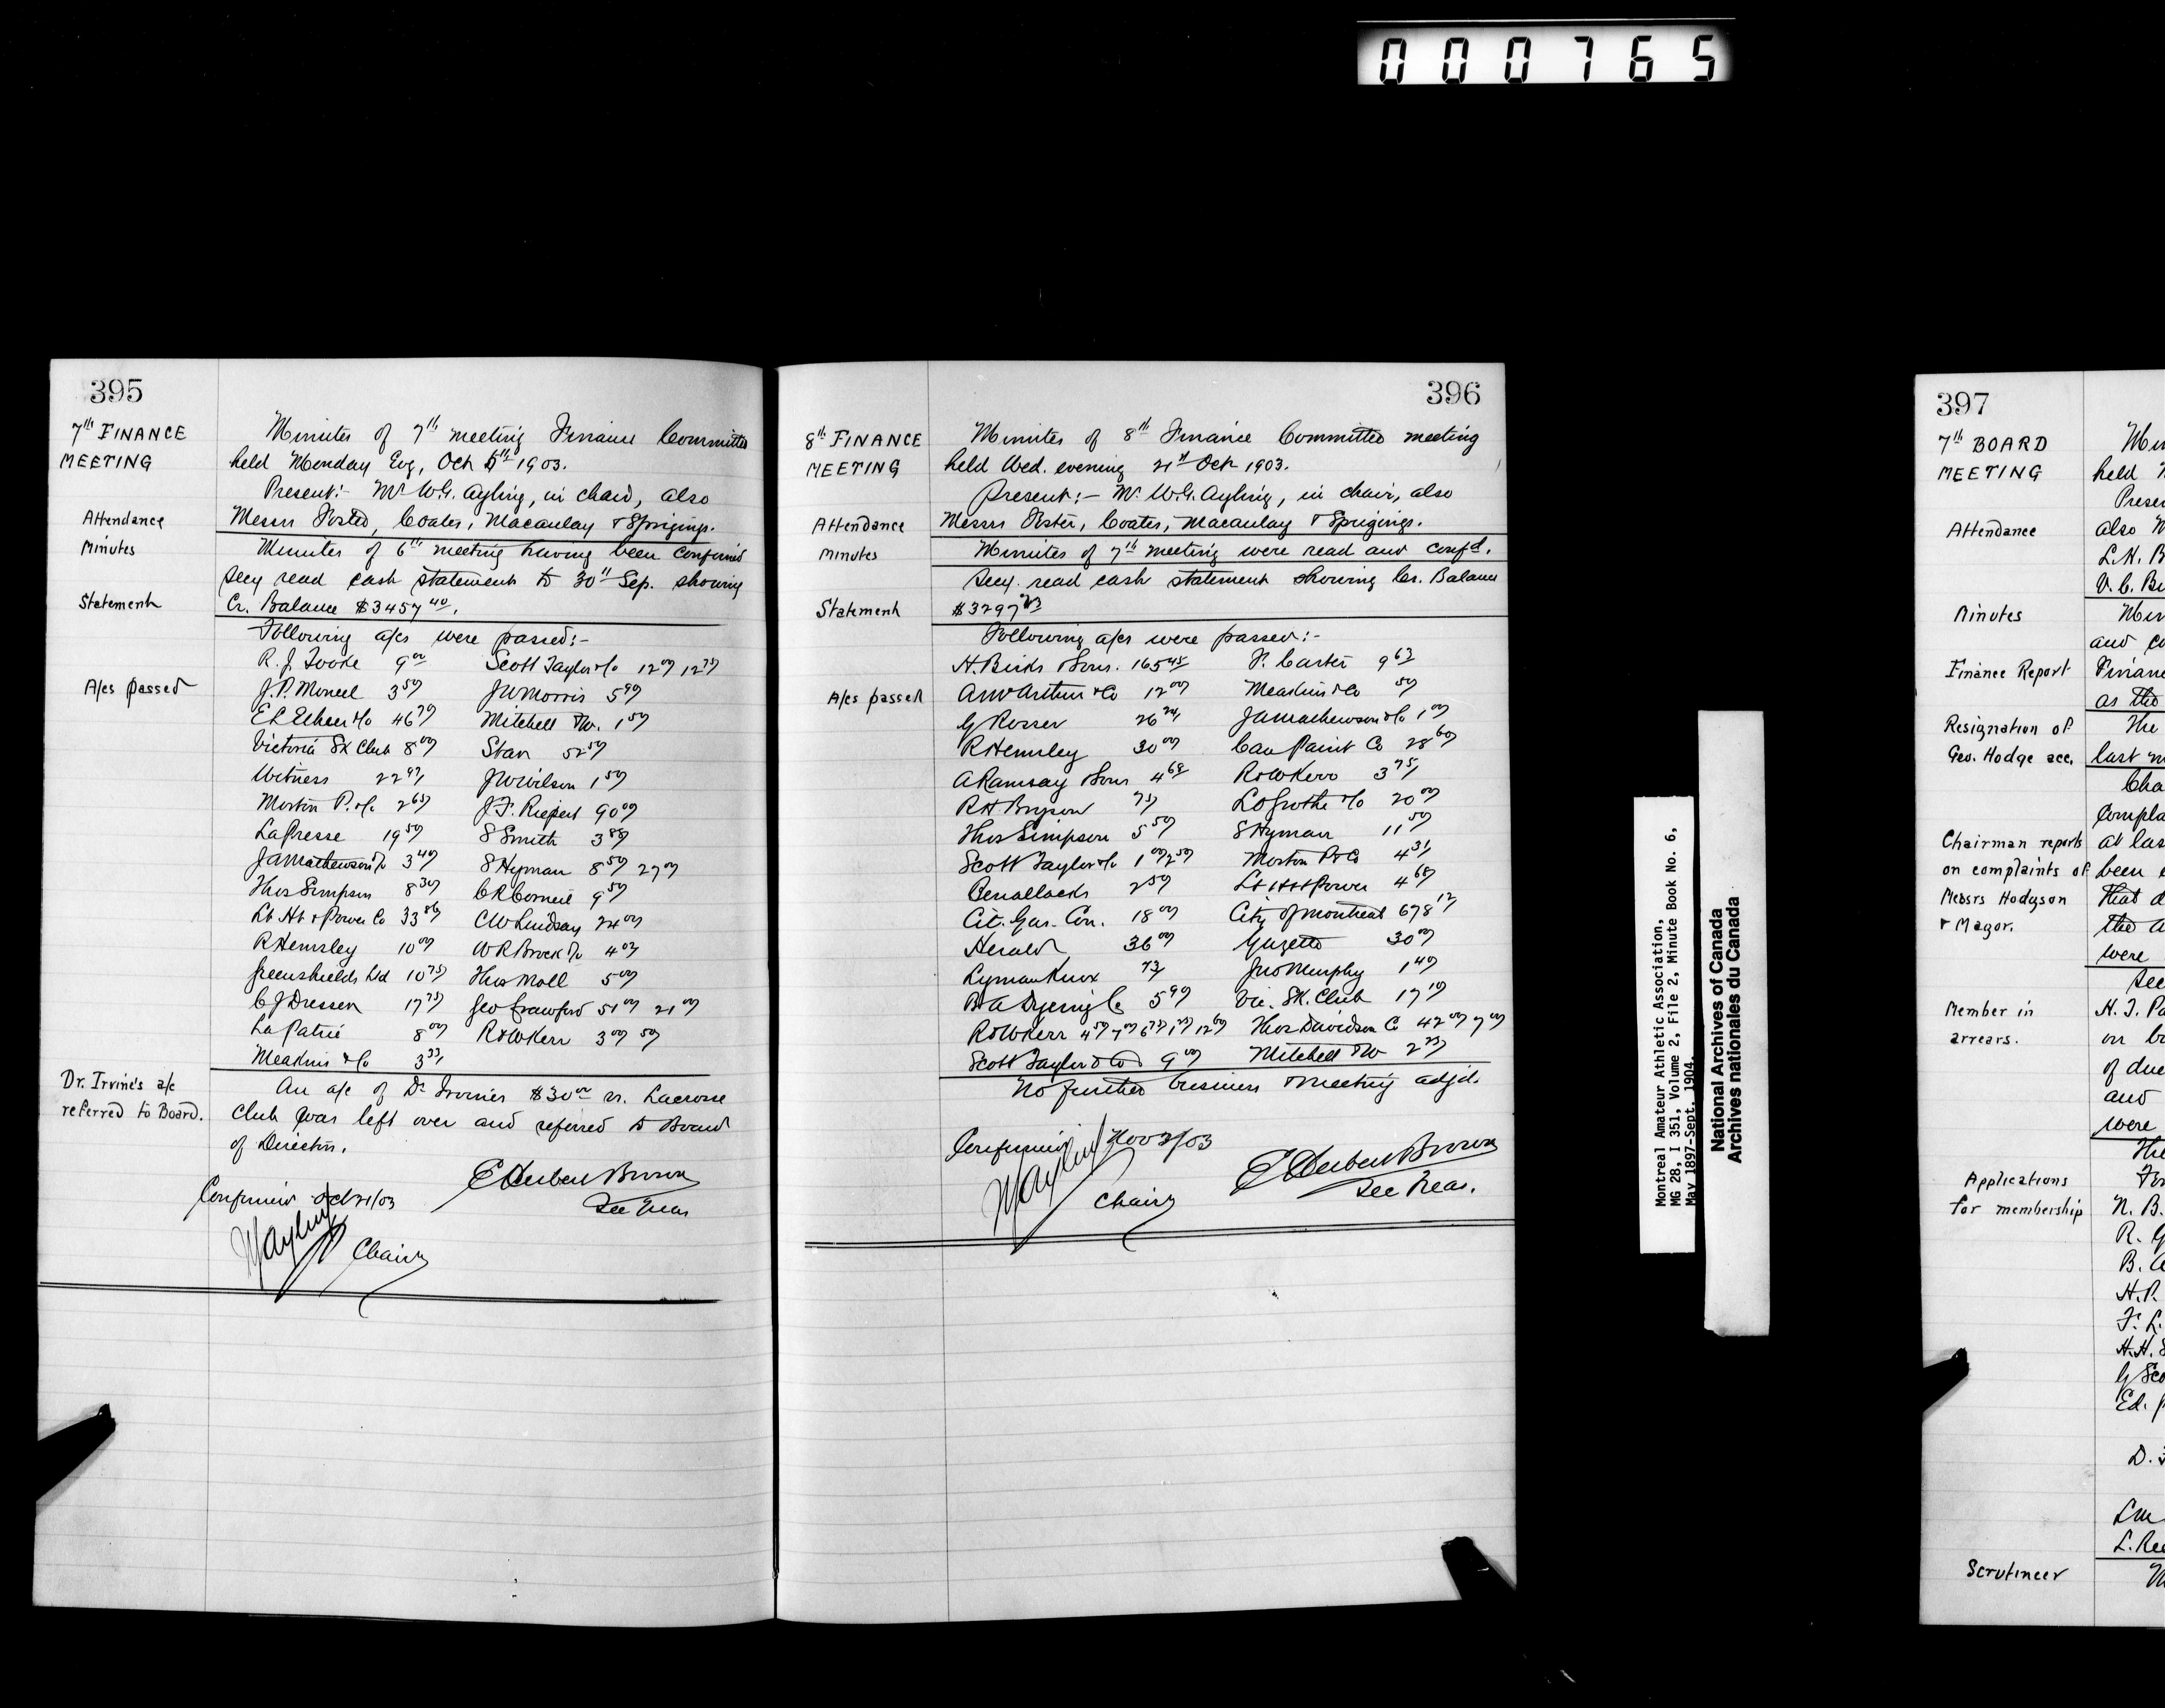 000765
395
7th FINANCE
MEETING
Minutes of 7th meeting Finance Committee
held Monday Evg, Oct 5th 1903.
Present:- Mr W.G. Ayling, in chair, also
Attendance
Messrs Foster, Coates, Macaulay & Sprigings.
Minutes
Minutes of 6th meeting having been confirmed
Secy read cash statement to 30th Sep. showing
Statement
Cr. Balance $3457 40.
Following a/cs were passed:-
R. J. Tooke 9 00 Scott Taylor & Co 12 00 12 75
A/cs passed
J. P. Moncel 3 50 JW Morris 5 90
46 70 Mitchell 1 50
Victoria Sk Club 8 00 Star 52 50
Witness 22 97 JW Wilson 1 50
Morton P. & Co. 2 65 J. F. Riepert 90 00
La Presse 19 50 S Smith 3 88
JA Mathewson & Co 3 40 S Hyman 8 50 27 00
Thos Simpson 8 30 CR Corneil 9 50
Lt Ht & Power Co 33 86 CW Lindsay 24 00
R Hemsley 10 00 WR Brock & Co 4 00
Greenshields Ltd 10 75 Thos Moll 5 00
C J Dressen 17 75 Geo Crawford 51 00 21 00
La Patrie 8 00 R & W Kerr 3 00 50
Meakins & Co 3 33
Dr. Irvine's a/c
referred to Board.
An a/c of Dr Irvines $30 00 vs. Lacrosse
Club was left over and referred to Board
of Directors.
E Herbert Brown
Sec Treas
Confirmed Oct 21/03
W Ayling
Chairn
396
8th FINANCE
MEETING
Minutes of 8th Finance Committee meeting
held Wed. evening 21st Oct 1903.
Present:- Mr. W.G. Ayling, in chair, also
Attendance
Messrs Foster, Coates, Macaulay & Sprigings.
Minutes
Minutes of 7th meeting were read and confd.
Secy. read cash statement showing Cr. Balance
Statement
$3297
Following a/cs were passed:-
H. Birks & Sons. 165 45 P. Carter 9 63
A/cs passed
12 00 Meakins & Co 50
G Rosser 26 24 JA Mathewson & Co 1 00
R Hemsley 30 00 Can Paint Co 28 60
A Ramsay & Sons 4 68 R & W Kerr 3 75
RH Bryson 75 20 00
Thos Simpson 5 50 S Hyman 11 50
Scott Taylor & Co 1 00 2 50 Morton P & Co 4 31
Benallacks 2 50 Lt Ht & Power 4 68
Cit. Gas. Con. 18 00 City of Montreal 678 12
Herald 36 00 Gazette 30 00
Lyman Knox 73 Jno Murphy 1 40
Dyeing Co 5 99 Vic. Sk. Club 17 10
R & W Kerr 4 50 7 00 6 75 1 75 12 60 Thos Davidson Co 42 00 7 00
Scott Taylor & Co 9 00 Mitchell 2 25
No further business & meeting adjd.
Confirmed Nov 2/03
W Ayling
Chairn
E Herbert Brown
Sec Treas.
Montreal Amateur Athletic Association,
MG 28, I 351, Volume 2, File 2, Minute Book No. 6,
May 1897-Sept. 1904.
National Archives of Canada
Archives nationales du Canada
397
7th BOARD
MEETING
held
Attendance
also
Minutes
and
Finance Report
as the
Resignation of
The
Geo. Hodge acc.
last
Chairman reports
at
on complaints of
been
Messrs Hodgson
that
& Magor.
the
were
Member in
H. J.
arrears.
on
of
and
were
Applications
for membership
N. B.
R. G
B.
H. P.
F. L.
H. H. S
Ed.
D.
Scrutineer